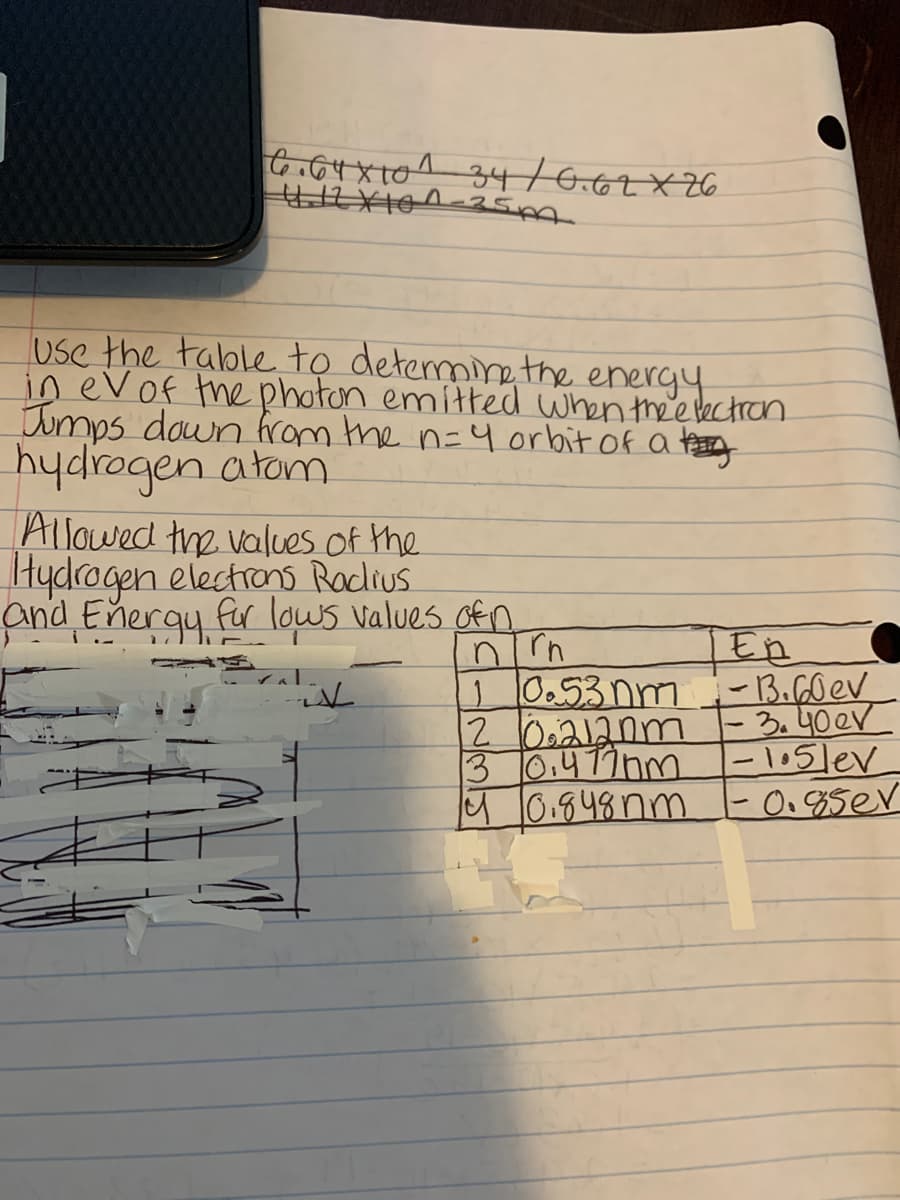 6.64x10^-34/6.62x26
4.12x10^-35m
Use the table to determine the energy
in eV of the photon emitted when the electron
Jumps down from the n=4 orbit of a
hydrogen atom
Allowed the values of the
Hydrogen electrons Radius
and Energy for lows values of n
n rn En
1 0.53nm -13.60ev
2 0.212nm -3.40ev
3 0.477nm -1.51ev
4 0.848nm -0.85ev